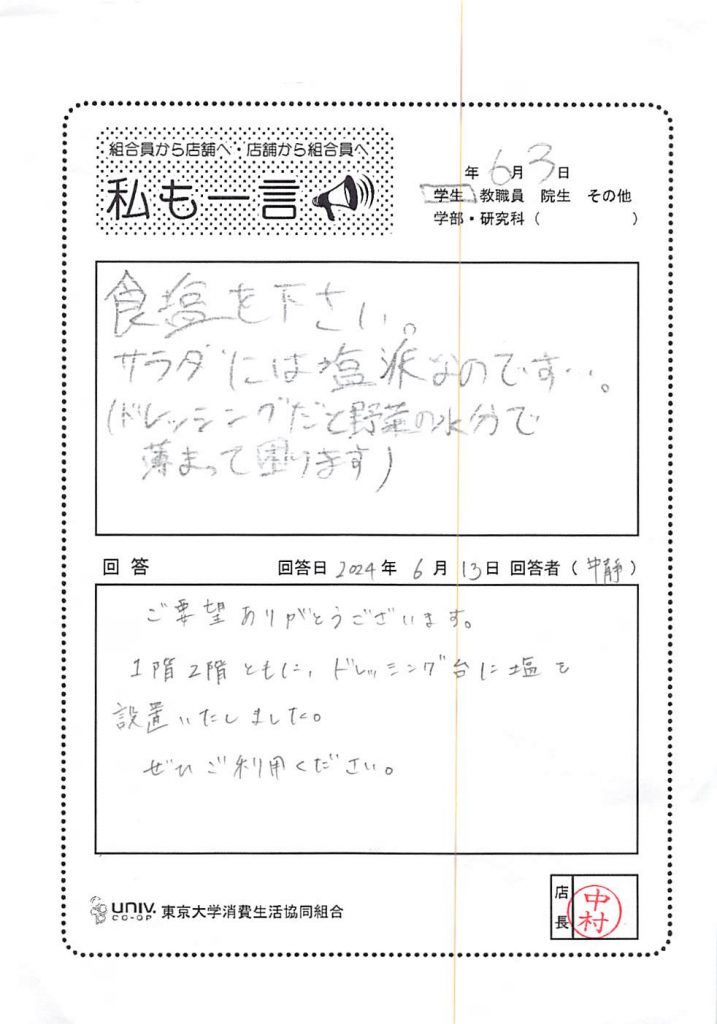 組合員から店舗へ・店舗から組合員へ
私も一言
年 6月 3日
学生 教職員 院生 その他
学部・研究科（ ）
食塩を下さい。
サラダには塩派なのです…。
(ドレッシングだと野菜の水分で
薄まって困ります)
回答 回答日 2024年 6月 13日 回答者（中静）
ご要望ありがとうございます。
1階2階ともに、ドレッシング台に塩を
設置いたしました。
ぜひご利用ください。
UNIV. CO-OP 東京大学消費生活協同組合
店長 中村